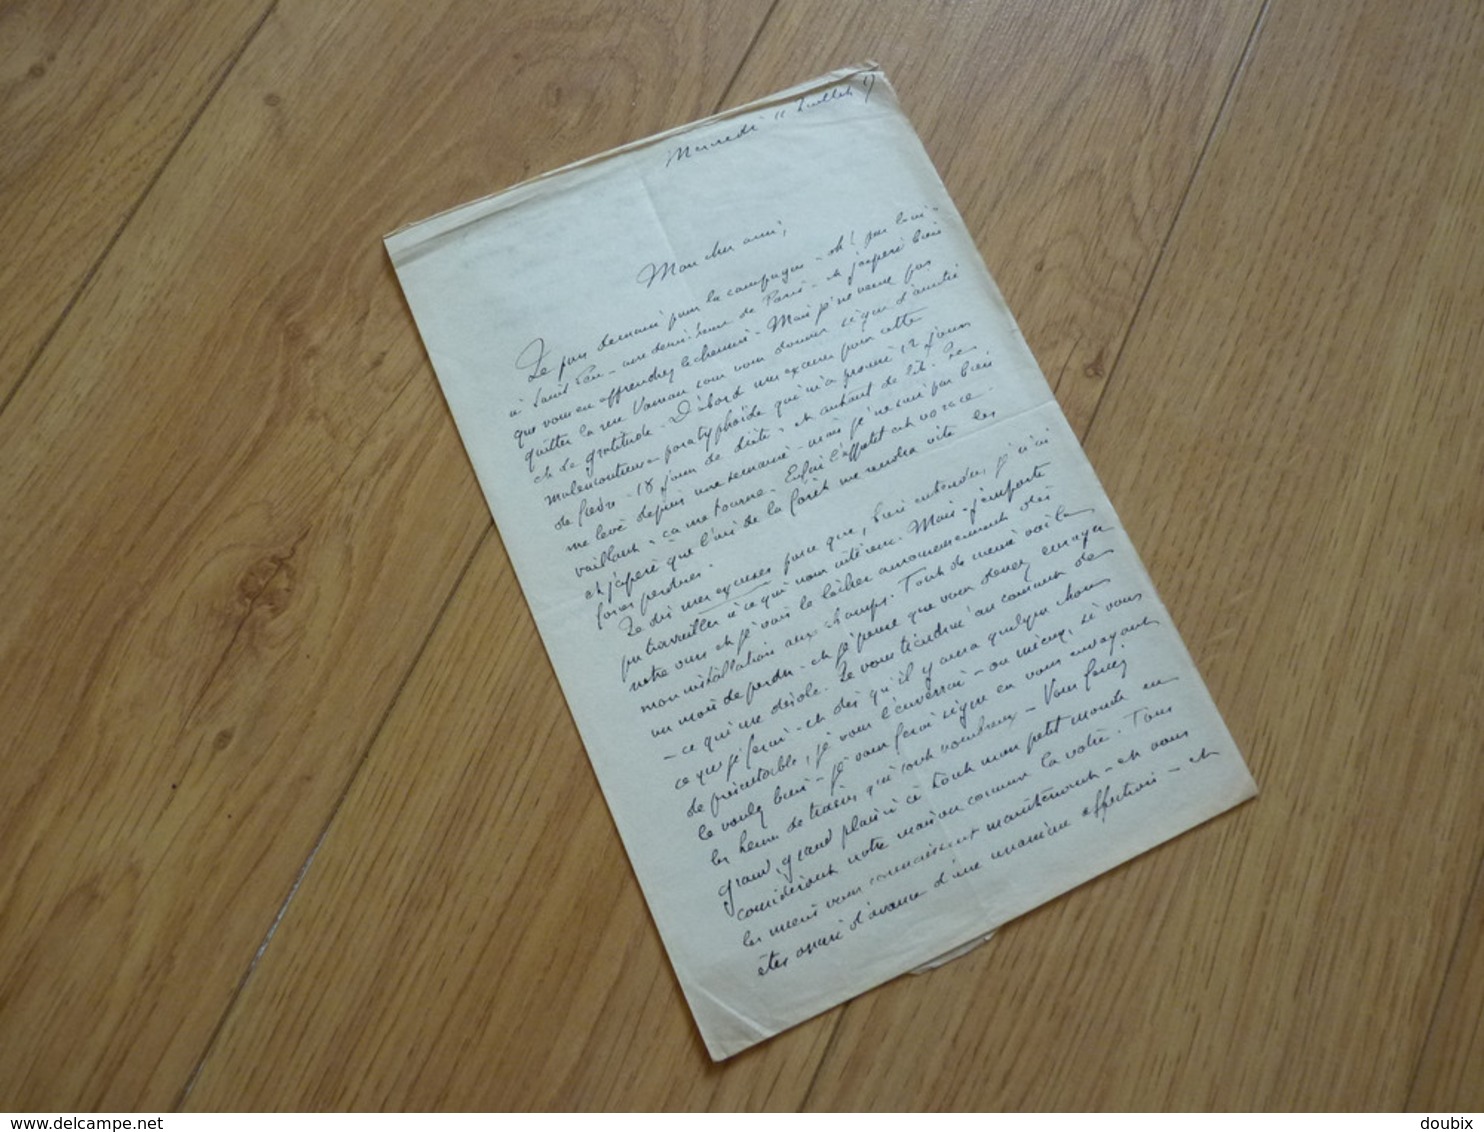 Mercredi 11 Juillet
Mon cher ami,
Je pars demain pour la campagne – oh! pas loin –
à Saint Leu – une demi-heure de Paris – et j'espère bien
que vous en apprendrez le chemin. Mais je ne veux pas
quitter la rue Vaneau sans vous donner signe d'amitié
et de gratitude. D'abord mes excuses pour cette
malencontreuse paratyphoïde qui m'a promené 12 jours
de fièvre – 18 jours de diète – et autant de lit. Je
me lève depuis une semaine – mais je ne suis pas bien
vaillant – ça me tourne. Enfin l'appétit est vorace
et j'espère que l'air de la forêt me rendra vite les
forces perdues.
Je dis mes excuses parce que, bien entendu, je n'ai
pu travailler à ce qui nous intéresse. Mais j'emporte
notre ours et je vais le lécher amoureusement dès
mon installation aux champs. Tout de même voilà
un mois de perdu – et je pense que vous devez enrager
– ce qui me désole. Je vous tiendrai au courant de
ce que je ferai – et dès qu'il y aura quelque chose
de présentable, je vous l'enverrai – ou mieux, si vous
le voulez bien – je vous ferai signe en vous envoyant
les heures de trains qui sont nombreux – Vous ferez
grand, grand plaisir à tout mon petit monde en
considérant notre maison comme la vôtre. Tous
les miens vous connaissent maintenant – et vous
êtes assuré d'avance d'une unanime affection – et
delcampe.net
doubix